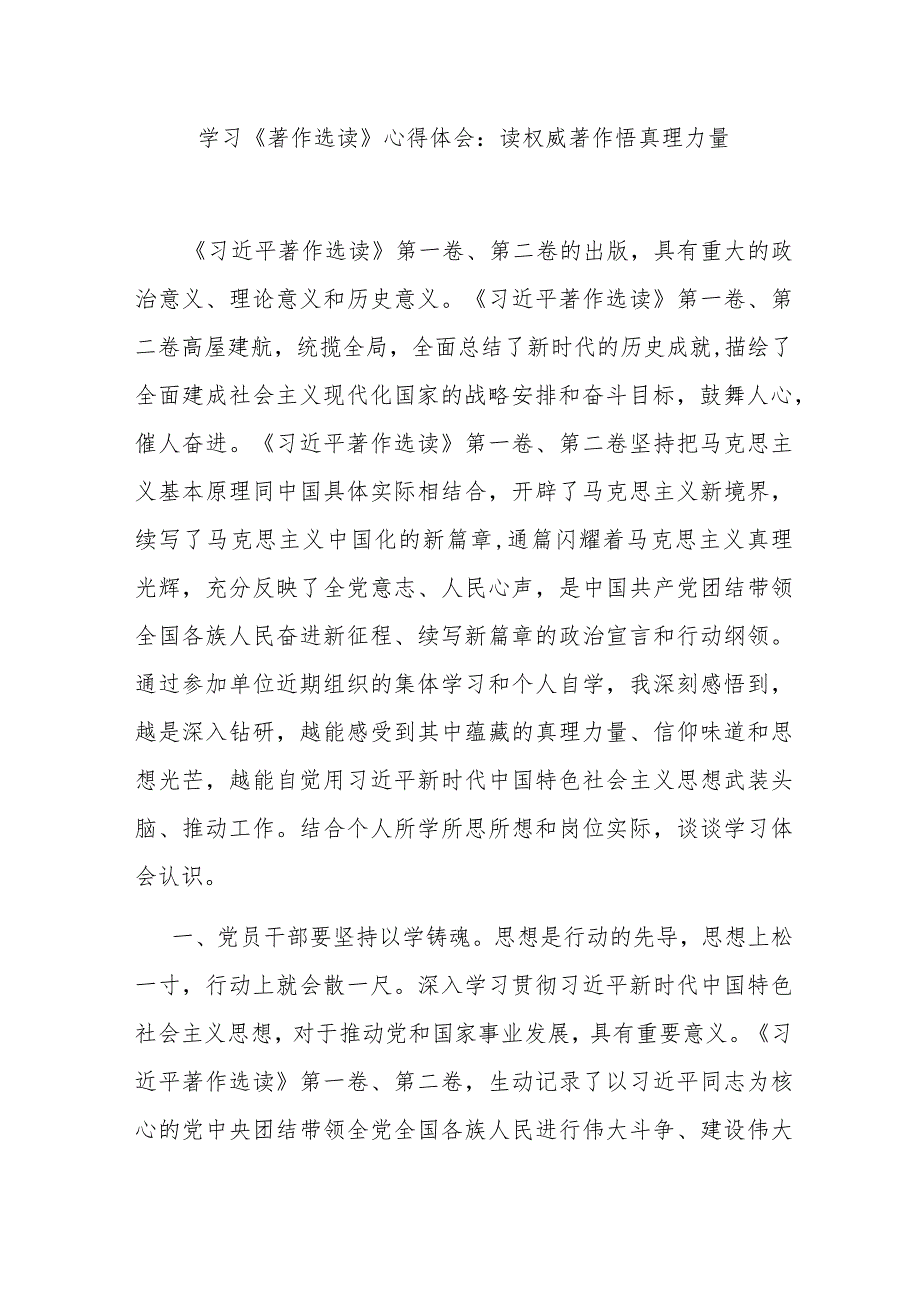 学习《著作选读》心得体会：读权威著作悟真理力量
《习近平著作选读》第一卷、第二卷的出版，具有重大的政
治意义、理论意义和历史意义。《习近平著作选读》第一卷、第
二卷高屋建航，统揽全局，全面总结了新时代的历史成就,描绘了
全面建成社会主义现代化国家的战略安排和奋斗目标，鼓舞人心，
催人奋进。《习近平著作选读》第一卷、第二卷坚持把马克思主
义基本原理同中国具体实际相结合，开辟了马克思主义新境界，
续写了马克思主义中国化的新篇章,通篇闪耀着马克思主义真理
光辉，充分反映了全党意志、人民心声，是中国共产党团结带领
全国各族人民奋进新征程、续写新篇章的政治宣言和行动纲领。
通过参加单位近期组织的集体学习和个人自学，我深刻感悟到，
越是深入钻研，越能感受到其中蕴藏的真理力量、信仰味道和思
想光芒，越能自觉用习近平新时代中国特色社会主义思想武装头
脑、推动工作。结合个人所学所思所想和岗位实际，谈谈学习体
会认识。
一、党员干部要坚持以学铸魂。思想是行动的先导，思想上松
一寸，行动上就会散一尺。深入学习贯彻习近平新时代中国特色
社会主义思想，对于推动党和国家事业发展，具有重要意义。《习
近平著作选读》第一卷、第二卷，生动记录了以习近平同志为核
心的党中央团结带领全党全国各族人民进行伟大斗争、建设伟大